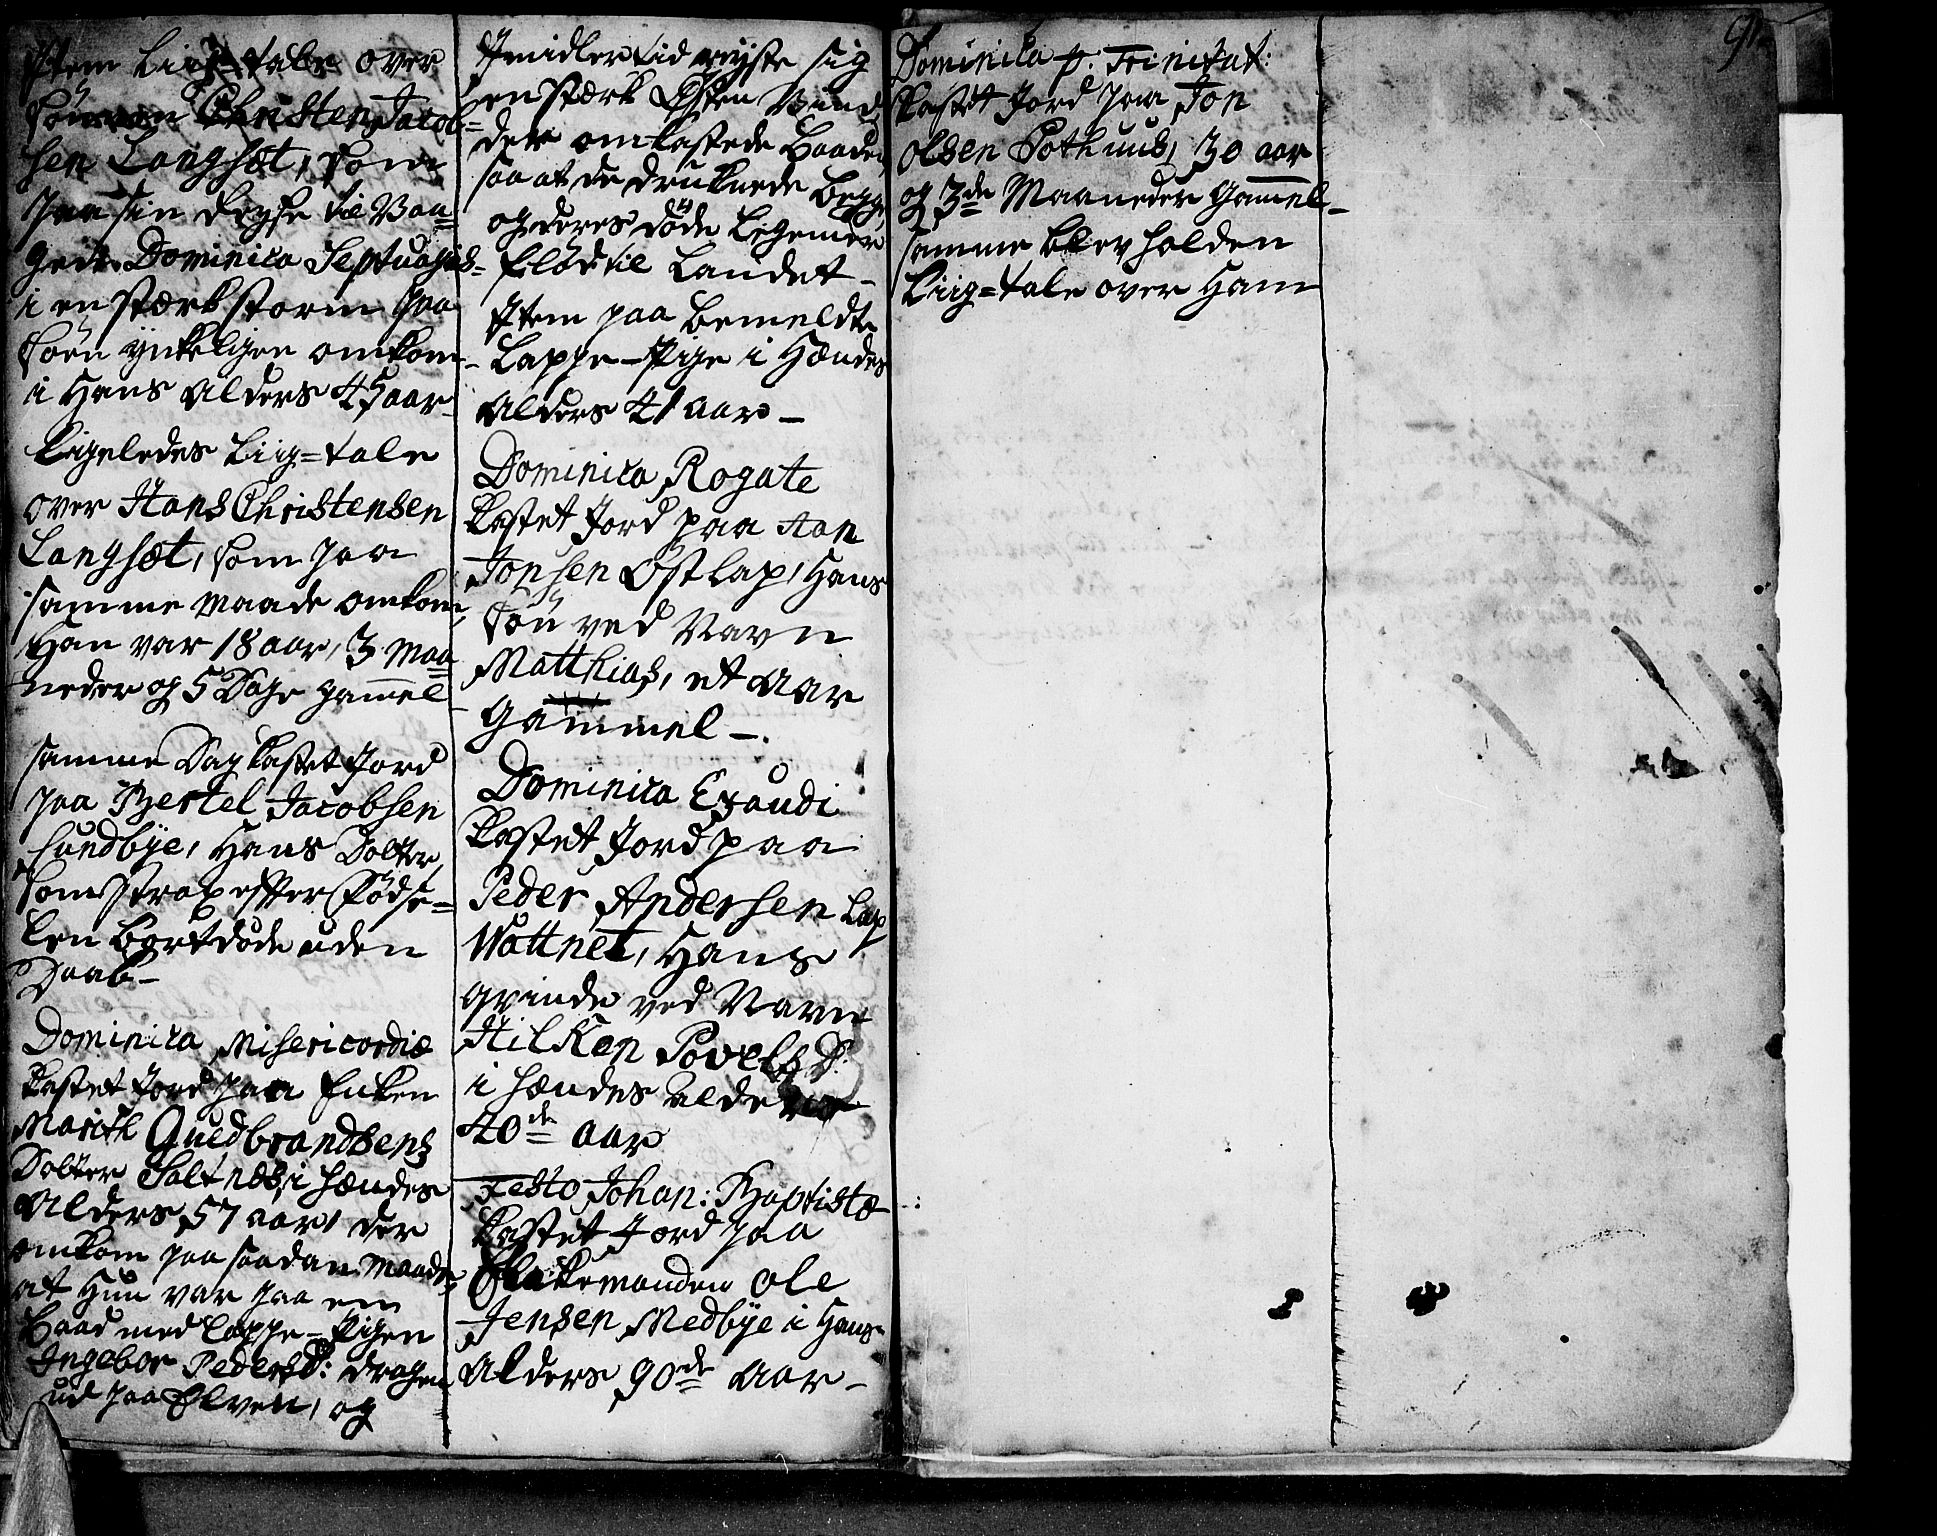 Item Liig-tale over
Sönnen Christen Jacob=
sen Langsæt, som
paa sin Reyse til Van=
get Dominica Septuages=
i en stærk storm paa
Söen ynkeligen omkom
i Hans Alders 45 aar
Ligeledes Liig=tale
over Hans Christensen
Langsæt, som paa
samme maade omkom,
Han var 18 aar, 3 Maa=
neder og 5 Dage gammel
samme Dag kastet Jord
paa Bertel Jacobsen
Sundbye, Hans Dotter,
som strax efter Födse=
len bortdöde uden
Daab-
Dominica Misericordiæ
kastet Jord paa Enken
Marith Guldbrandsens
Dotter Saltnes i Hændes
Alders 57 aar, der
omkom paa saadan maade,
at Hun var paa en
Baad med Lappe-Pigen
Ingebor Peders D: dragen
ud paa Elven, og
Imidlertid reyste sig
en stærk Østen Vind,
der omkastede Baaden,
saa at de druknede begge
og deres döde Legemer
flöd til Landet-
Item paa bemeldte
Lappe-Pige i Hændes
Alders 41 aar-
Dominica Rogate
kastet Jord paa Aan
Jonsen Østlap, Hans
sön ved Navn
Matthias, et aar
Gammel-.
Dominica Exaudi
kastet Jord paa
Peder Andersen Lap
Wattnet, Hans
qvinde ved Navn
Hilken Povels D:
i Hændes Alders
40de aar
Festo Johan: Baptistæ
kastet Jord paa
Ole
Jensen Medbye i Hans
Alders 90de Aar-
91.
Dominica p. Trinitat:
kastet Jord paa Jon
Olsen Pothuus, 30 aar
og 3de Maaneder Gammel-
samme blev holden
Liig=tale over Ham